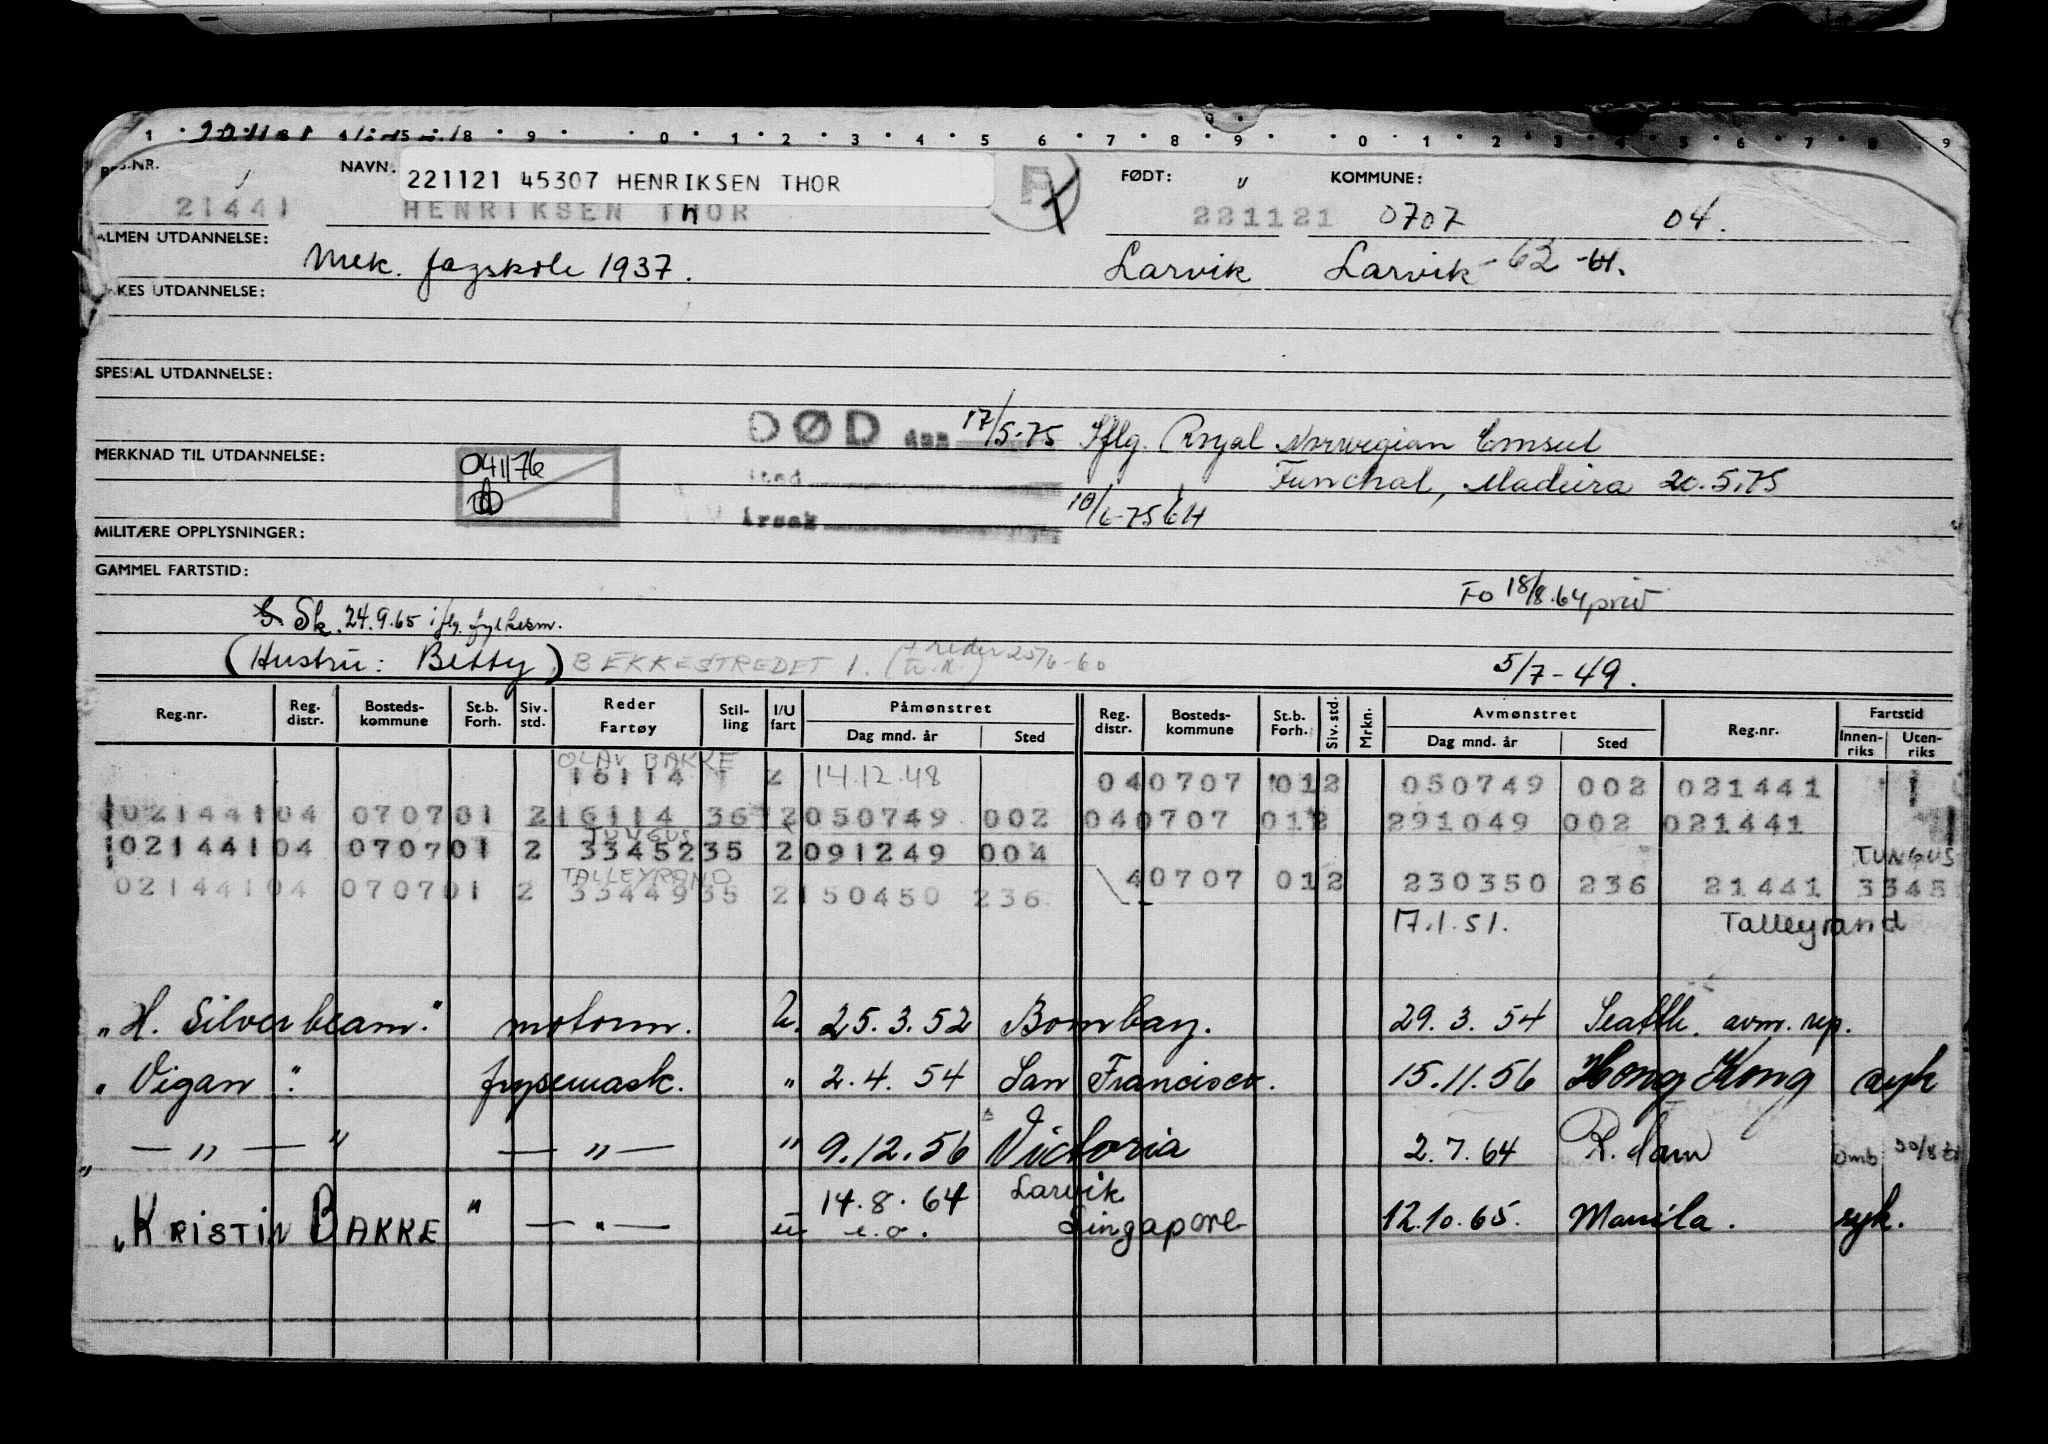 REG.NR. 21441
NAVN: 221121 45307 HENRIKSEN THOR
HENRIKSEN THOR
FØDT: 221121
KOMMUNE: 0707 04.
ALMEN UTDANNELSE: Mek. fagskole 1937. Larvik Larvik -62
YRKES UTDANNELSE:
SPESIAL UTDANNELSE:
DØD den 17/5-75 Iflg. Royal Norwegian Consul
MERKNAD TIL UTDANNELSE: 041176 sted Funchal, Madeira 20.5.75
årsak 10/6-75
MILITÆRE OPPLYSNINGER:
GAMMEL FARTSTID:
Fo 18/8.64 priv
Sk. 24.9.65 iflg. fylkesm.
(Hustru: Betty) BEKKESTREDET 1. 5/7-49.
Reg.nr. Reg. distr. Bosteds-kommune St.b. Forh. Siv. std. Reder Fartøy Stil-ling I/U fart Påmønstret Dag mnd. år Sted Reg. distr. Bosteds-kommune St.b. Forh. Siv. std. Mrkn. Avmønstret Dag mnd. år Sted Reg.nr. Fartstid Innen-riks Uten-riks
OLAV BAKKE
16114 2 14.12.48 04 0707 01 2 050749 002 021441
021441 04 0707 01 2 16114 36 2 050749 002 04 0707 01 2 291049 002 021441
TUNGUS
021441 04 0707 01 2 33452 35 2 091249 004 TUNGUS
40707 01 2 230350 236 21441 3345
TALLEYRAND
021441 04 0707 01 2 33449 35 2 150450 236
17.1.51. Talleyrand
"H. Silverbeam." motorm. U. 25.3.52 Bombay. 29.3.54 Seattle. avm. rep.
"Vigan" frysemask. " 2.4.54 San Francisco. 15.11.56 Hong Kong syk
" — " — " — " — " 9.12.56 Victoria 2.7.64 R.dam
14.8.64 Larvik
"KRISTIN BAKKE" — " — u e.o. Singapore 12.10.65. Manila. syk.